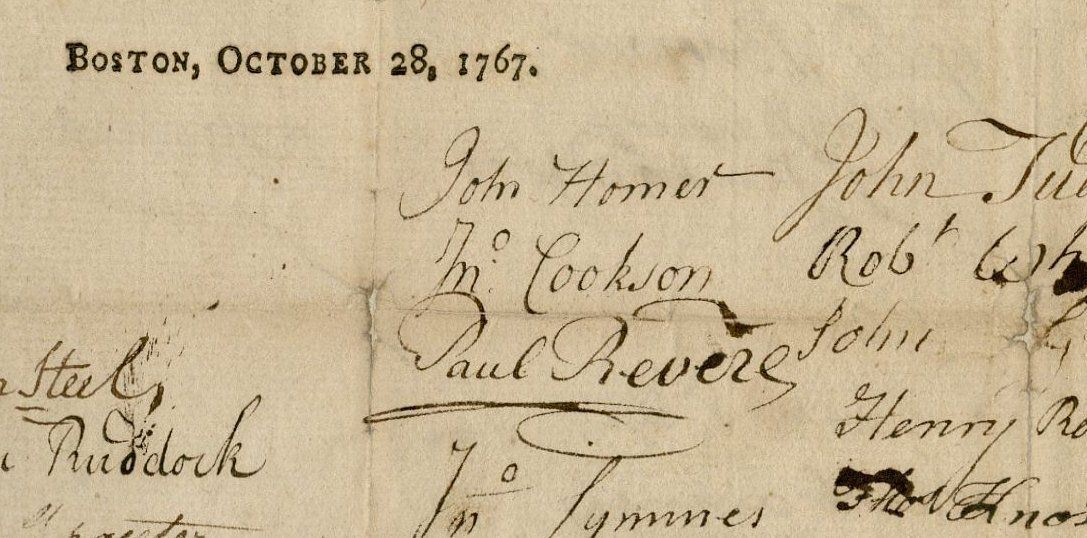 BOSTON, OCTOBER 28, 1767.
John Homer
Jno. Cookson
Paul Revere
Jno Symmes
John
Robt
John
Henry
Thos Knox
Steel
Ruddock